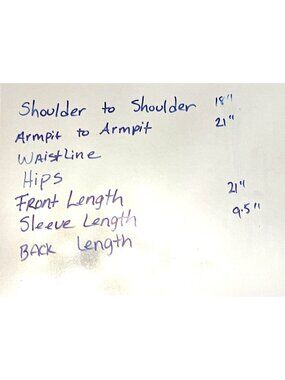 Shoulder to Shoulder 18"
Armpit to Armpit 21"
Waistline
Hips
Front Length 21"
Sleeve Length 9.5"
BACK Length